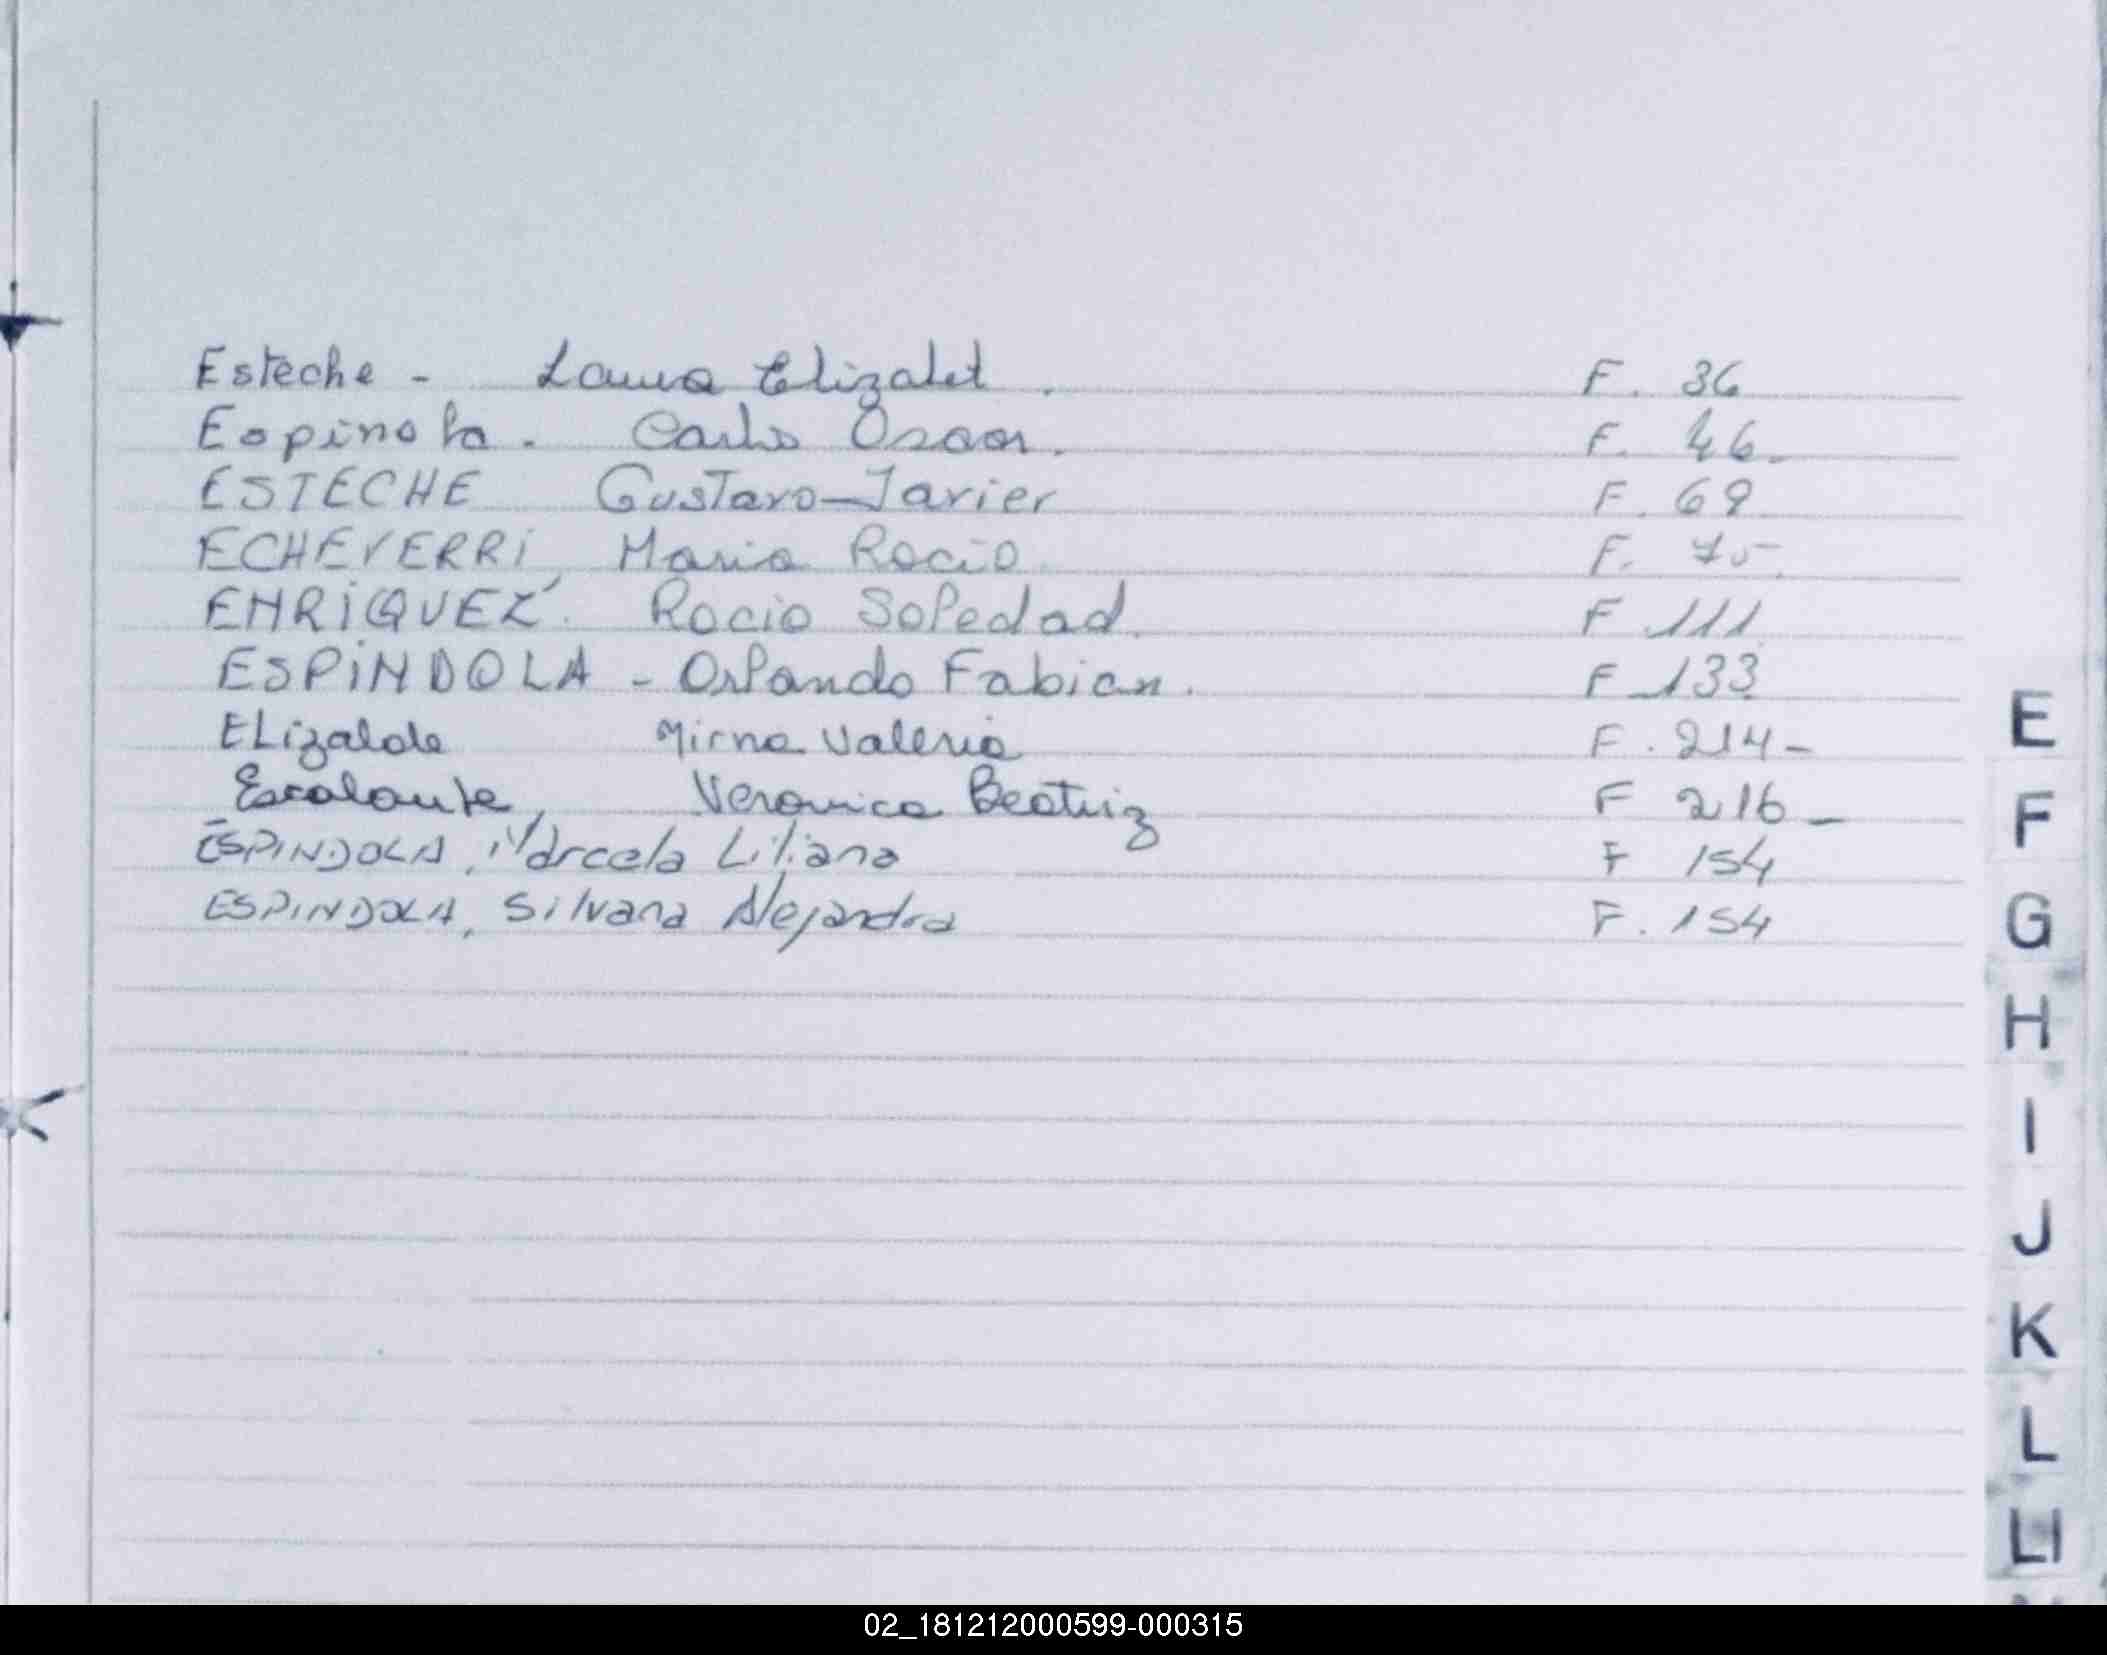 Esteche - Laura Elizabet. F. 36
Espinola. Carlos Oscar. F. 46-
ESTECHE Gustavo Javier F. 69
ECHEVERRI, Maria Rocio F. 75
ENRIQUEZ. Rocio Soledad. F 111
ESPINDOLA - Orlando Fabian. F 133
ELizalde Mirna Valeria F. 214-
Escalante, Veronica Beatriz F 216-
ESPINDOLA, Marcela Liliana F 154
ESPINDOLA, Silvana Alejandra F. 154
E
F
G
H
I
J
K
L
LI
02_181212000599-000315